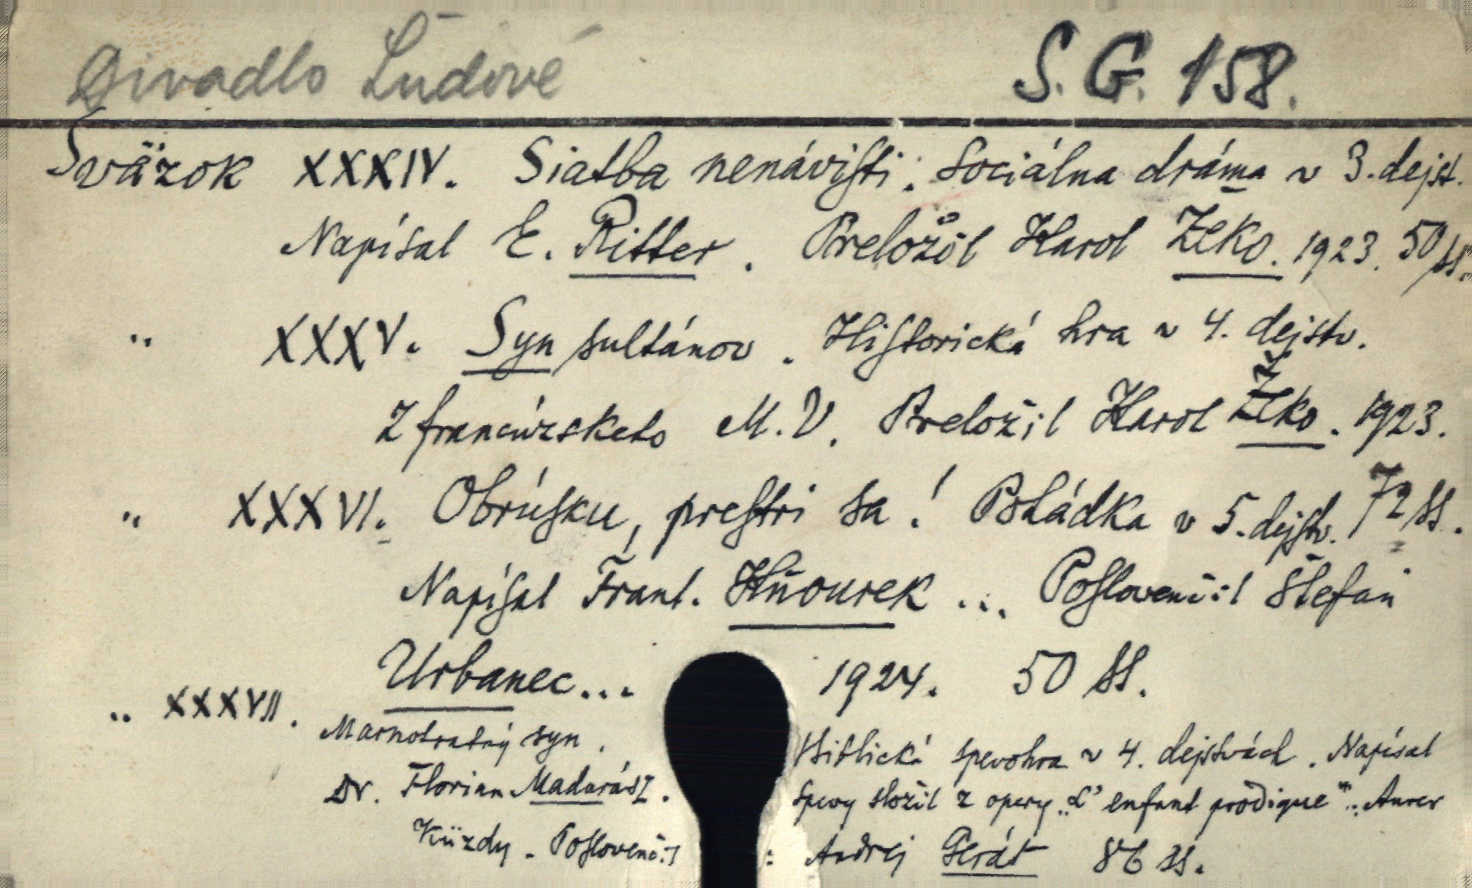 Divadlo Ľudové S. G. 158.
Sväzok XXXIV. Siatba nenávisti. Sociálna dráma v 3. dejst.
Napísal E. Ritter. Preložil Karol Žeko. 1923. 50 ss.
" XXXV. Syn sultánov. Historická hra v 4. dejstv.
Z francúzskeho M. V. Preložil Karol Žeko. 1923.
" XXXVI. Obrúsku, prestri sa! Pohádka v 5. dejstv. 72 ss.
Napísal Frant. Hňourek... Poslovenčil Štefan
Urbanec... 1924. 50 ss.
" XXXVII. Marnotratný syn. Biblická spevohra v 4. dejstvách. Napísal
Dr. Florian Madarász. Spevy složil z opery „L' enfant prodique": Aurer
Küzdy. Poslovenčil: Andrej Gerát 86 ss.